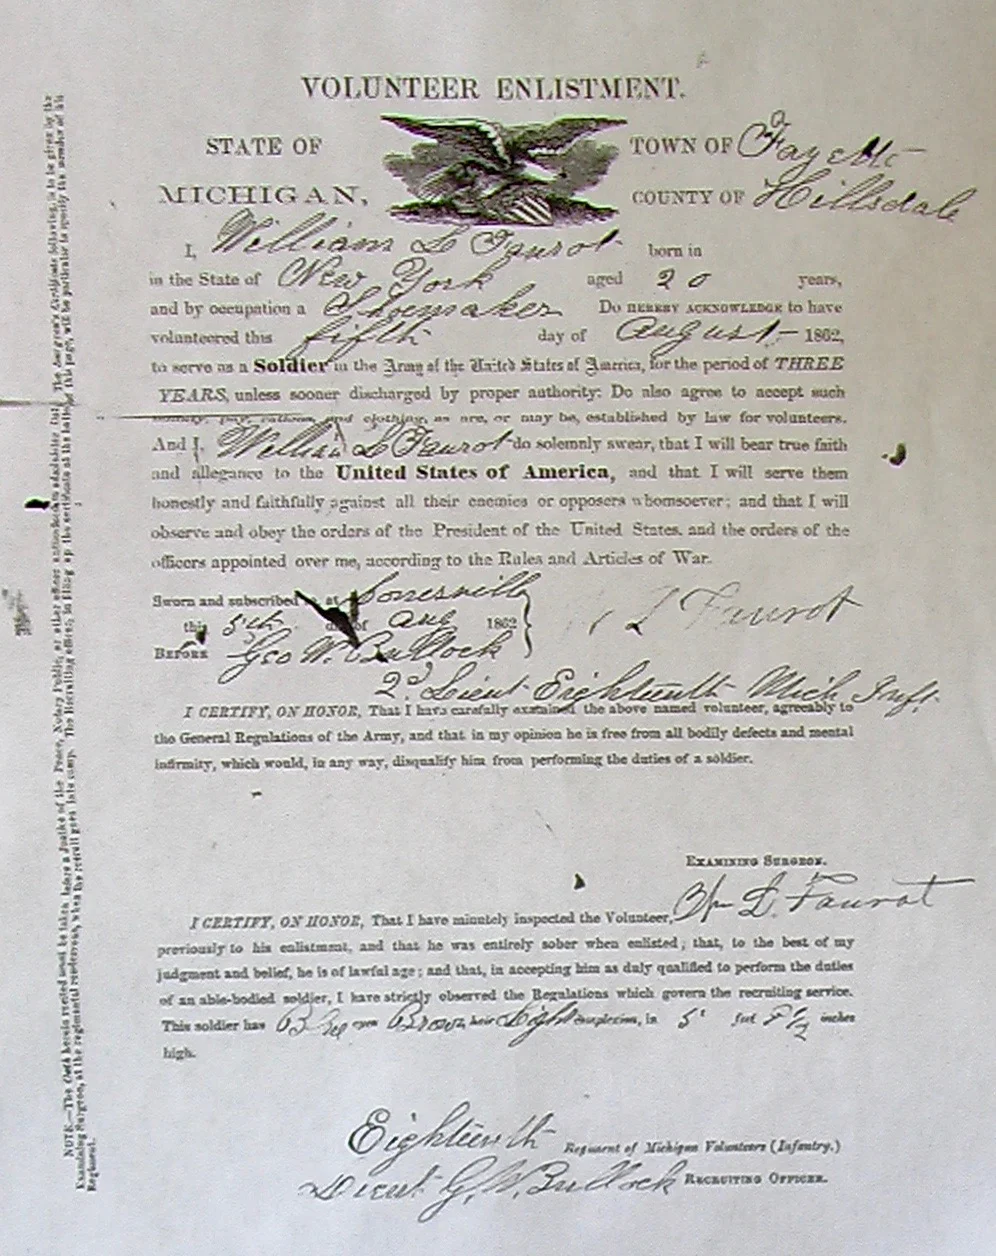 VOLUNTEER ENLISTMENT.
STATE OF
MICHIGAN,
TOWN OF Fayette
COUNTY OF Hillsdale
I, William L Faurot born in
in the State of New York aged 20 years,
and by occupation a Shoemaker Do HEREBY ACKNOWLEDGE to have
volunteered this fifth day of August 1862,
to serve as a Soldier in the Army of the United States of America, for the period of THREE
YEARS, unless sooner discharged by proper authority: Do also agree to accept such
bounty, pay, rations, and clothing, as are, or may be, established by law for volunteers.
And I, William L Faurot do solemnly swear, that I will bear true faith
and allegance to the United States of America, and that I will serve them
honestly and faithfully against all their enemies or opposers whomsoever; and that I will
observe and obey the orders of the President of the United States, and the orders of the
officers appointed over me, according to the Rules and Articles of War.
Sworn and subscribed at Jonesville
this 5th day of Aug 1862
BEFORE Geo W. Bullock
L Faurot
2d Lieut Eighteenth Mich Inft.
I CERTIFY, ON HONOR, That I have carefully examined the above named volunteer, agreeably to
the General Regulations of the Army, and that in my opinion he is free from all bodily defects and mental
infirmity, which would, in any way, disqualify him from performing the duties of a soldier.
EXAMINING SURGEON.
I CERTIFY, ON HONOR, That I have minutely inspected the Volunteer, Wm L. Faurot
previously to his enlistment, and that he was entirely sober when enlisted; that, to the best of my
judgment and belief, he is of lawful age; and that, in accepting him as duly qualified to perform the duties
of an able-bodied soldier, I have strictly observed the Regulations which govern the recruiting service.
This soldier has Blue eyes Brown hair Light complexion, is 5' feet 8 1/2 inches
high.
Eighteenth Regiment of Michigan Volunteers (Infantry.)
Lieut G. W. Bullock RECRUITING OFFICER.
NOTE.—The Oath herein recited must be taken before a Justice of the Peace, Notary Public, or other officer authorized to administer it. The Surgeon's Certificate following, is to be given by the
Examining Surgeon, at the regimental rendezvous, when the recruit goes into camp. The Recruiting officer, in filling up the certificate at the bottom of this page, will be particular to specify the number of his
Regiment.